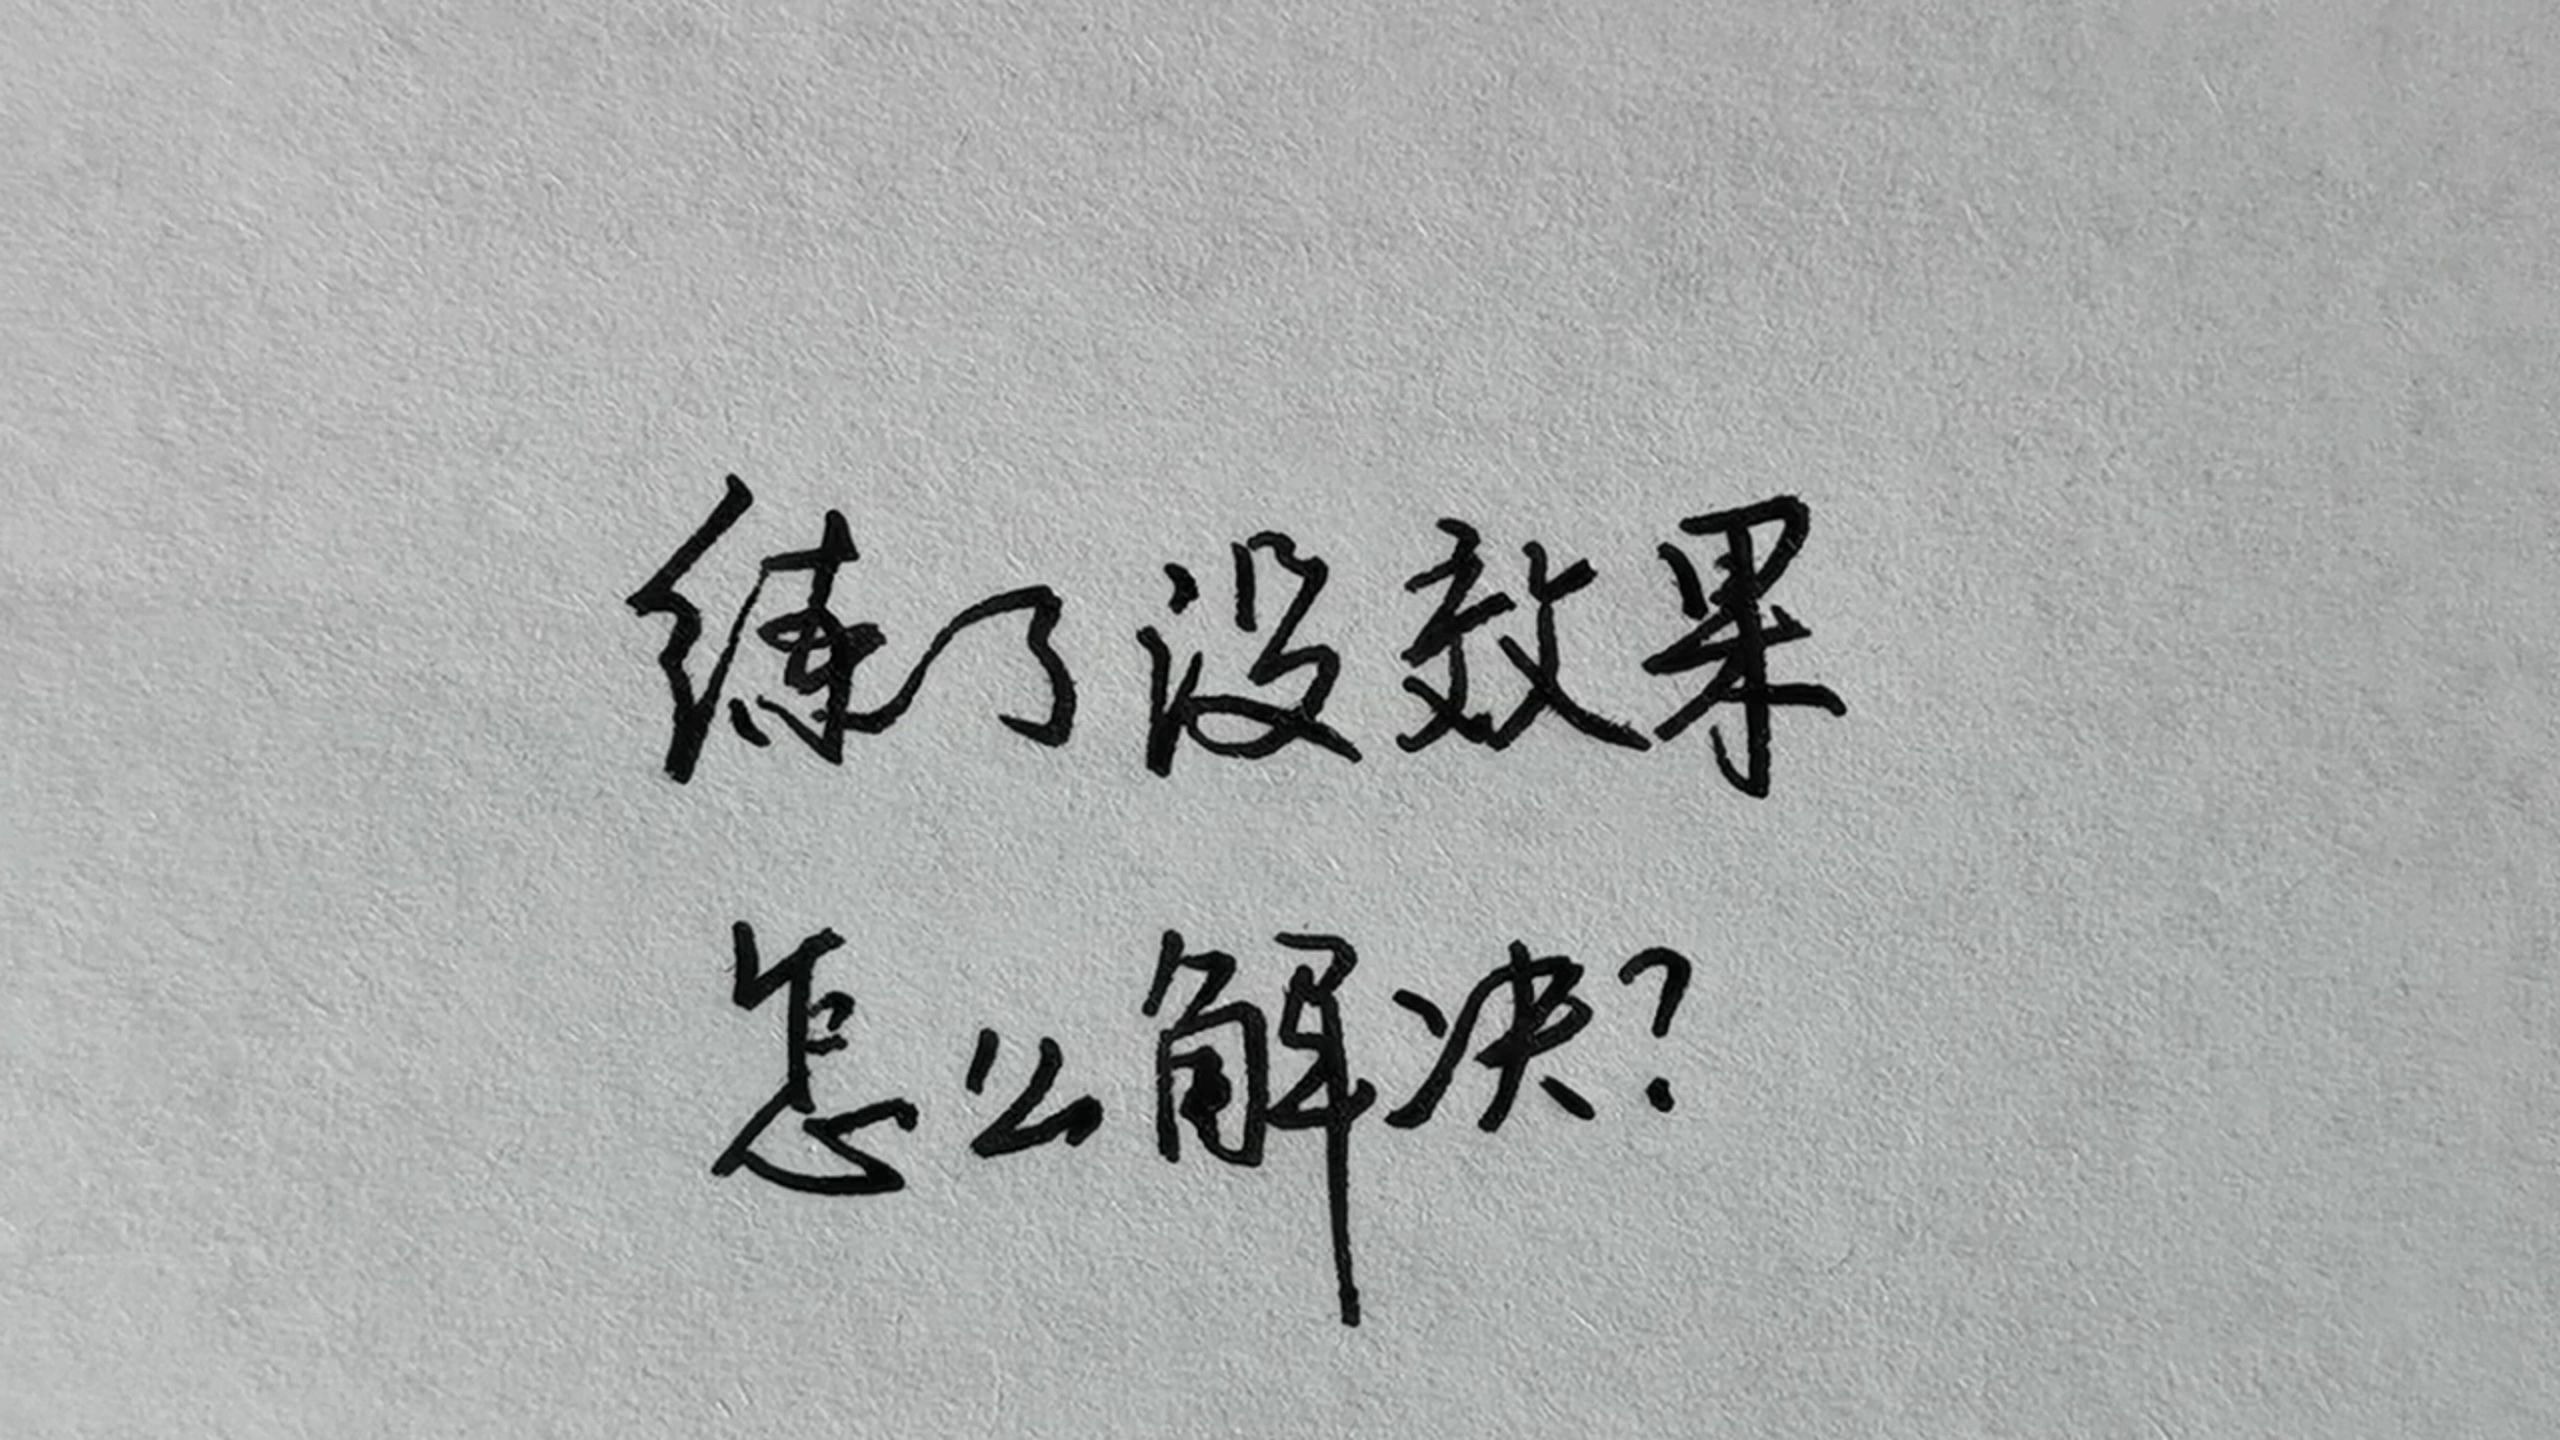 练了没效果
怎么解决?